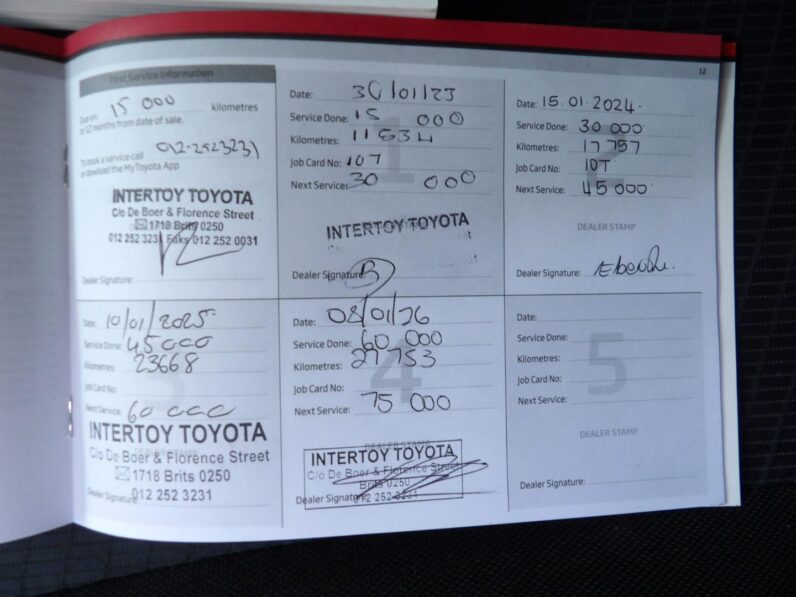 12
First Service Information
Due on: 15 000 kilometres
or 12 months from date of sale.
To book a service call 012-2523231
or dowload the MyToyota App
INTERTOY TOYOTA
C/o De Boer & Florence Street
1718 Brits 0250
012 252 3231 Faks 012 252 0031
Dealer Signature:
1
Date: 30/01/23
Service Done: 15 000
Kilometres: 11534
Job Card No: 107
Next Service: 30 000
INTERTOY TOYOTA
Dealer Signature:
2
Date: 15.01.2024.
Service Done: 30 000
Kilometres: 17 757
Job Card No: 107
Next Service: 45 000
DEALER STAMP
Dealer Signature:
3
Date: 10/01/2025.
Service Done: 45000
Kilometres: 23668
Job Card No:
Next Service: 60 000
INTERTOY TOYOTA
C/o De Boer & Florence Street
1718 Brits 0250
Dealer Signature 012 252 3231
4
Date: 08/01/26
Service Done: 60 000
Kilometres: 27753
Job Card No:
Next Service: 75 000
DEALER STAMP
INTERTOY TOYOTA
C/o De Boer & Florence Street
Brits 0250
Dealer Signature 012 252 3231
5
Date:
Service Done:
Kilometres:
Job Card No:
Next Service:
DEALER STAMP
Dealer Signature: